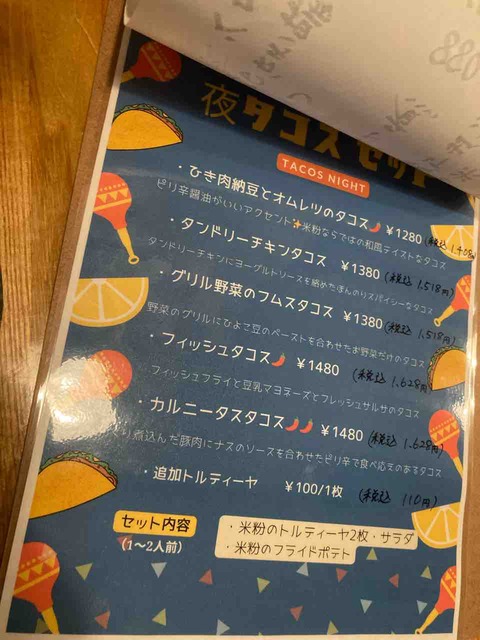 夜タコスセット
TACOS NIGHT
・ひき肉納豆とオムレツのタコス🌶 ¥1280 (税込 1,408円)
ピリ辛醤油がいいアクセント✨米粉ならではの和風テイストなタコス
・タンドリーチキンタコス ¥1380 (税込 1,518円)
タンドリーチキンにヨーグルトソースを絡めたほんのりスパイシーなタコス
・グリル野菜のフムスタコス ¥1380 (税込 1,518円)
野菜のグリルにひよこ豆のペーストを合わせたお野菜だけのタコス
・フィッシュタコス🌶 ¥1480 (税込 1,628円)
フィッシュフライと豆乳マヨネーズとフレッシュサルサのタコス
・カルニータスタコス🌶🌶 ¥1480 (税込 1,628円)
り煮込んだ豚肉にナスのソースを合わせたピリ辛で食べ応えのあるタコス
・追加トルティーヤ ¥100/1枚 (税込 110円)
セット内容
(1〜2人前)
・米粉のトルティーヤ2枚・サラダ
・米粉のフライドポテト